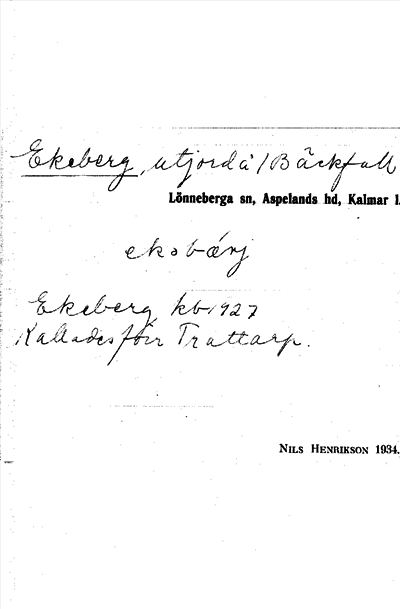 Ekeberg, utjord å /Bäckfall
Lönneberga sn, Aspelands hd, Kalmar l.
ekəbærj
Ekeberg kb 1927
Kallades förr Trattarp.
NILS HENRIKSON 1934.